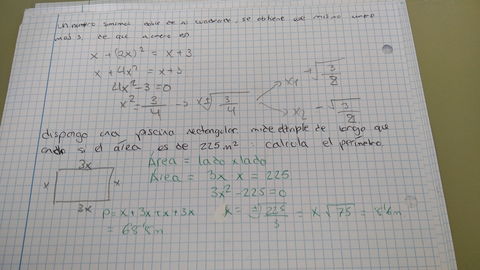 un numero sumamos doble de su cuadrado, se obtiene ese mismo numero
mas 3, de que numero es
x + (2x)² = x + 3
x + 4x² = x + 3
4x² - 3 = 0
x² = 3/4 → x = √3/4
x₁ + √3/8
x₂ - √3/8
dispongo una piscina rectangular mide el triple de largo que
ancho si el área es de 225 m² calcula el perimetro
3x
x
x
3x
Área = lado x lado
Área = 3x x = 225
3x² - 225 = 0
P = x + 3x + x + 3x
= 68'8m
x = √225/3 = x √75 = 8'6m